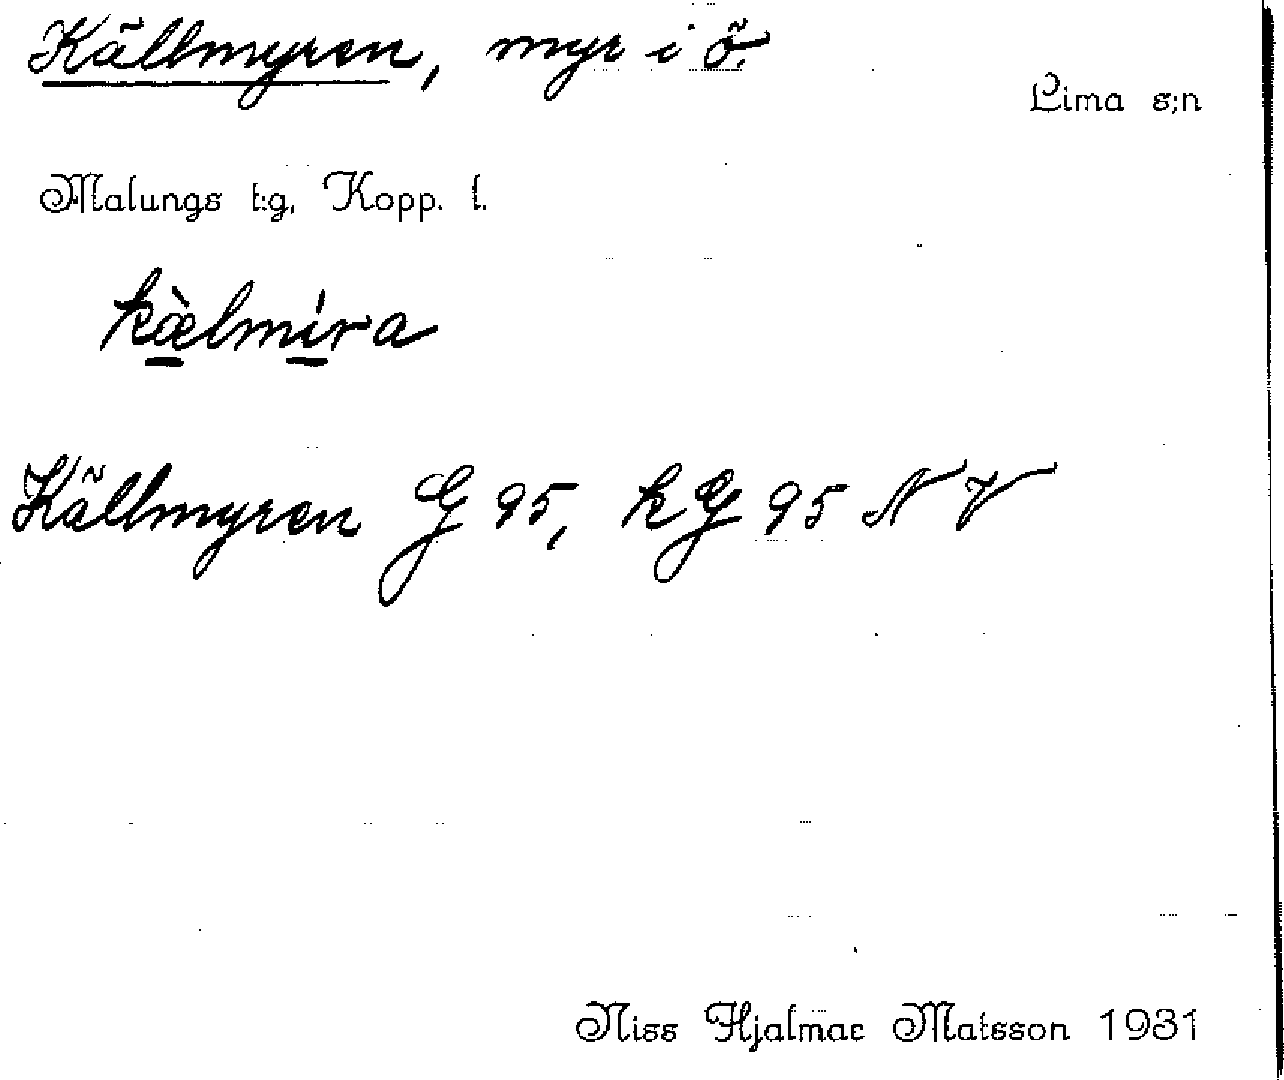 Källmyren, myr i ö.
Lima s:n
Malungs t:g, Kopp. l.
kæ̀lmíra
Källmyren G 95, kG 95 NV
Niss Hjalmar Matsson 1931